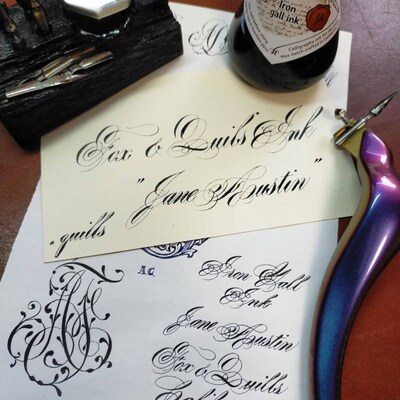 Iron
gall ink
Calligraphy
Fox & Quils & Ink
"Jane Austin"
quills
A.G.
Iron Gall
Ink
Jane Austin
Fox & Quills